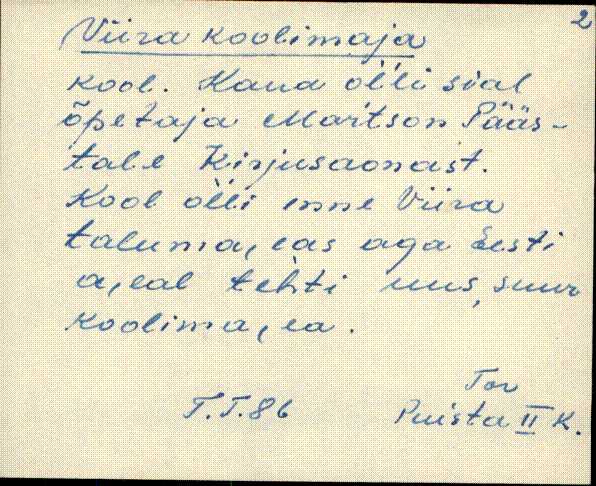 2
Viira koolimaja
kool. Kaua ol'li sial
õpetaja Martson Pääs-
tale Kirjusaonast.
Kool ol'li enne Viira
taluma,eas aga Eesti
a,eal tehti uus, suur
koolima,ea.
Tor
T.T.86 Puista II K.